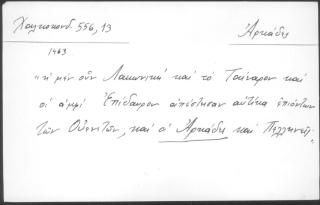 Χαλκοκονδ. 556, 13
Ἀρκάδες
1463
"ἡ μὲν οὖν Λακωνικὴ καὶ τὸ Ταίναρον καὶ
οἱ ἀμφὶ Ἐπίδαυρον ἀπέστησαν αὐτίκα ἐπιόντων
τῶν Οὐενετῶν, καὶ οἱ Ἀρκάδες καὶ Πελληνεῖς"